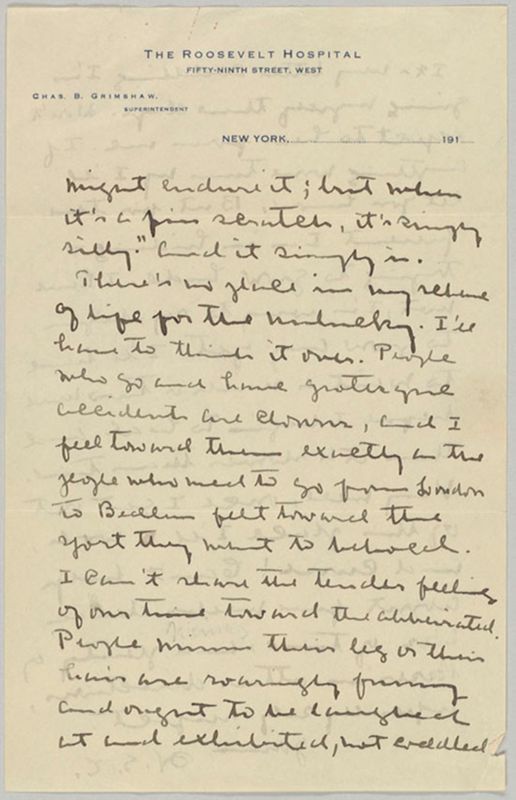 THE ROOSEVELT HOSPITAL
FIFTY-NINTH STREET, WEST
CHAS. B. GRIMSHAW,
SUPERINTENDENT
NEW YORK, 191
might endure it; but when
it's a pin scratch, it's simply
silly." And it simply is.
There's no place in my scheme
of life for the unlucky. I'll
have to think it over. People
who go and have grotesque
accidents are clowns, and I
feel toward them exactly as the
people who used to go from London
to Bedlam felt toward the
sport they went to behold.
I can't share the tender feeling
of our time toward the abbreviated.
People minus their leg or their
hair are roaringly funny
and ought to be laughed
at and exhibited, not coddled